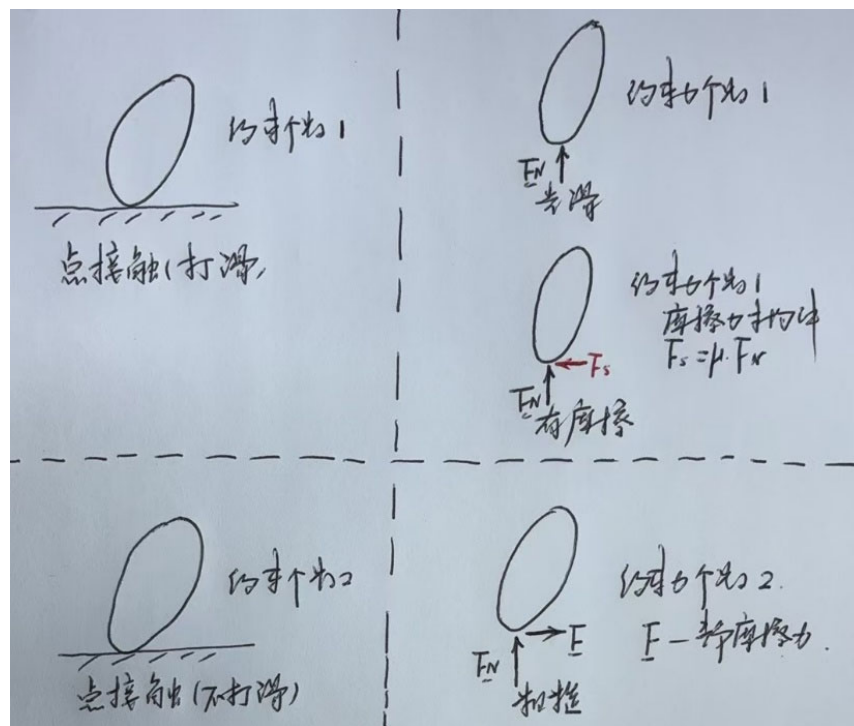 约束个数1
点接触(打滑)
约束力个数1
F_N
光滑
约束力个数1
摩擦力
F_s=μ·F_N
F_s
F_N
有摩擦
约束个数2
点接触(不打滑)
约束力个数2.
F — 静摩擦力.
F
F_N
粗糙